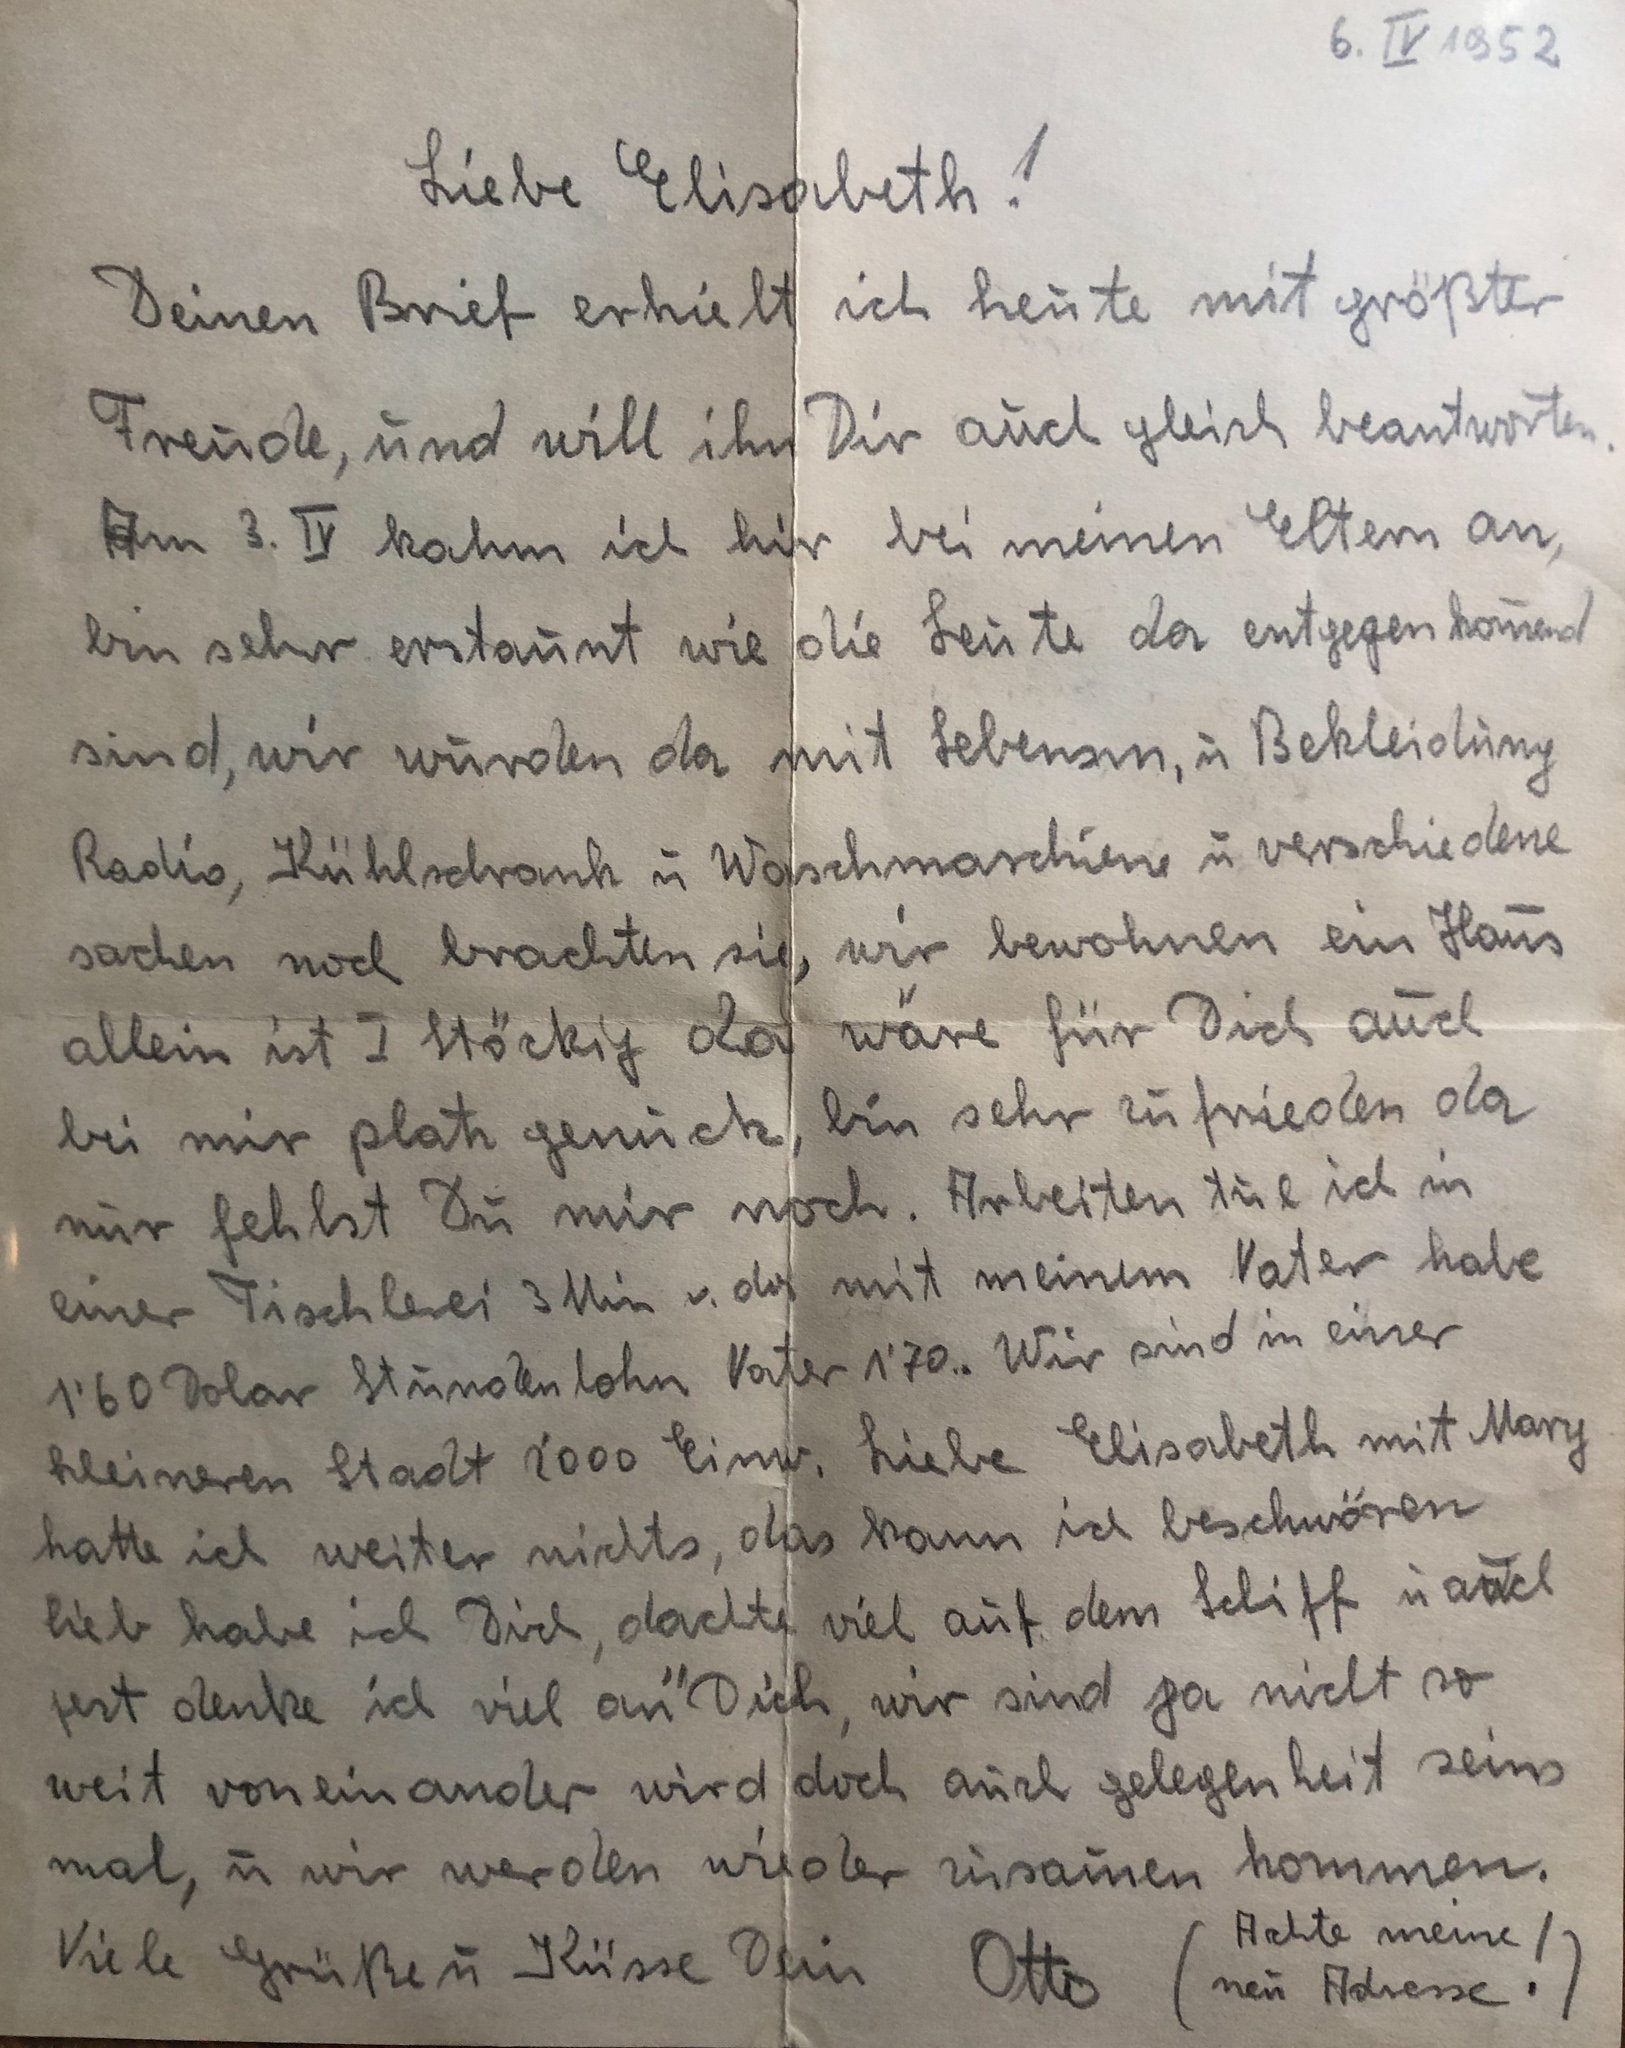 6. IV 1952
Liebe Elisabeth!
Deinen Brief erhielt ich heute mit größter
Freude, und will ihn Dir auch gleich beantworten.
Am 3. IV kahm ich hir bei meinen Eltern an,
bin sehr erstaunt wie die Leute da entgegenkom̄end
sind, wir wurden da mit Lebensm, u Bekleidung
Radio, Kühlschrank u Waschmaschiene u verschiedene
sachen noch brachten sie, wir bewohnen ein Haus
allein ist I Stöckig da wäre für Dich auch
bei mir platz genuck, bin sehr zufrieden da
nur fehlst Du mir noch. Arbeiten tue ich in
einer Tischlerei 3 Min v. da mit meinem Vater habe
1'60 Dolar Stundenlohn Vater 1'70.. Wir sind in einer
kleineren Stadt 2'000 Einw. Liebe Elisabeth mit Mary
hatte ich weiter nichts, das kann ich beschwören
lieb habe ich Dich, dachte viel auf dem Schiff u auch
jezt denke ich viel an "Dich, wir sind ja nicht so
weit voneinander wird doch auch gelegenheit seins
mal, u wir werden wieder zusam̄en kommen.
Viele Grüße u Küsse Dein Otto (Achte meine
neu Adresse!!)